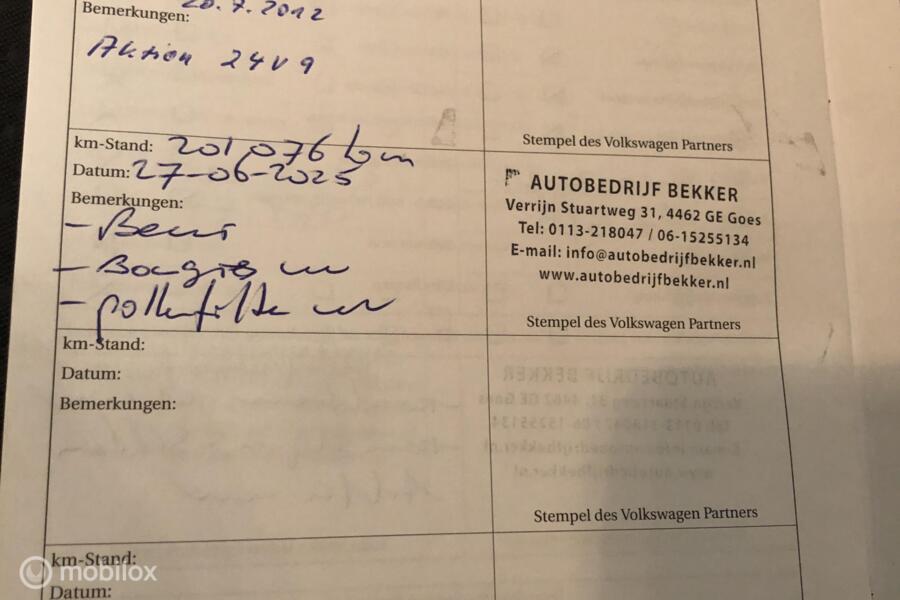 Bemerkungen: 20.7.2012
Aktion 24V9
Stempel des Volkswagen Partners
km-Stand: 201,076 km
Datum: 27-06-2025
Bemerkungen:
- Beurt
- Bougies
- pollenfilter
AUTOBEDRIJF BEKKER
Verrijn Stuartweg 31, 4462 GE Goes
Tel: 0113-218047 / 06-15255134
E-mail: info@autobedrijfbekker.nl
www.autobedrijfbekker.nl
Stempel des Volkswagen Partners
km-Stand:
Datum:
Bemerkungen:
Stempel des Volkswagen Partners
km-Stand:
Datum:
mobilox